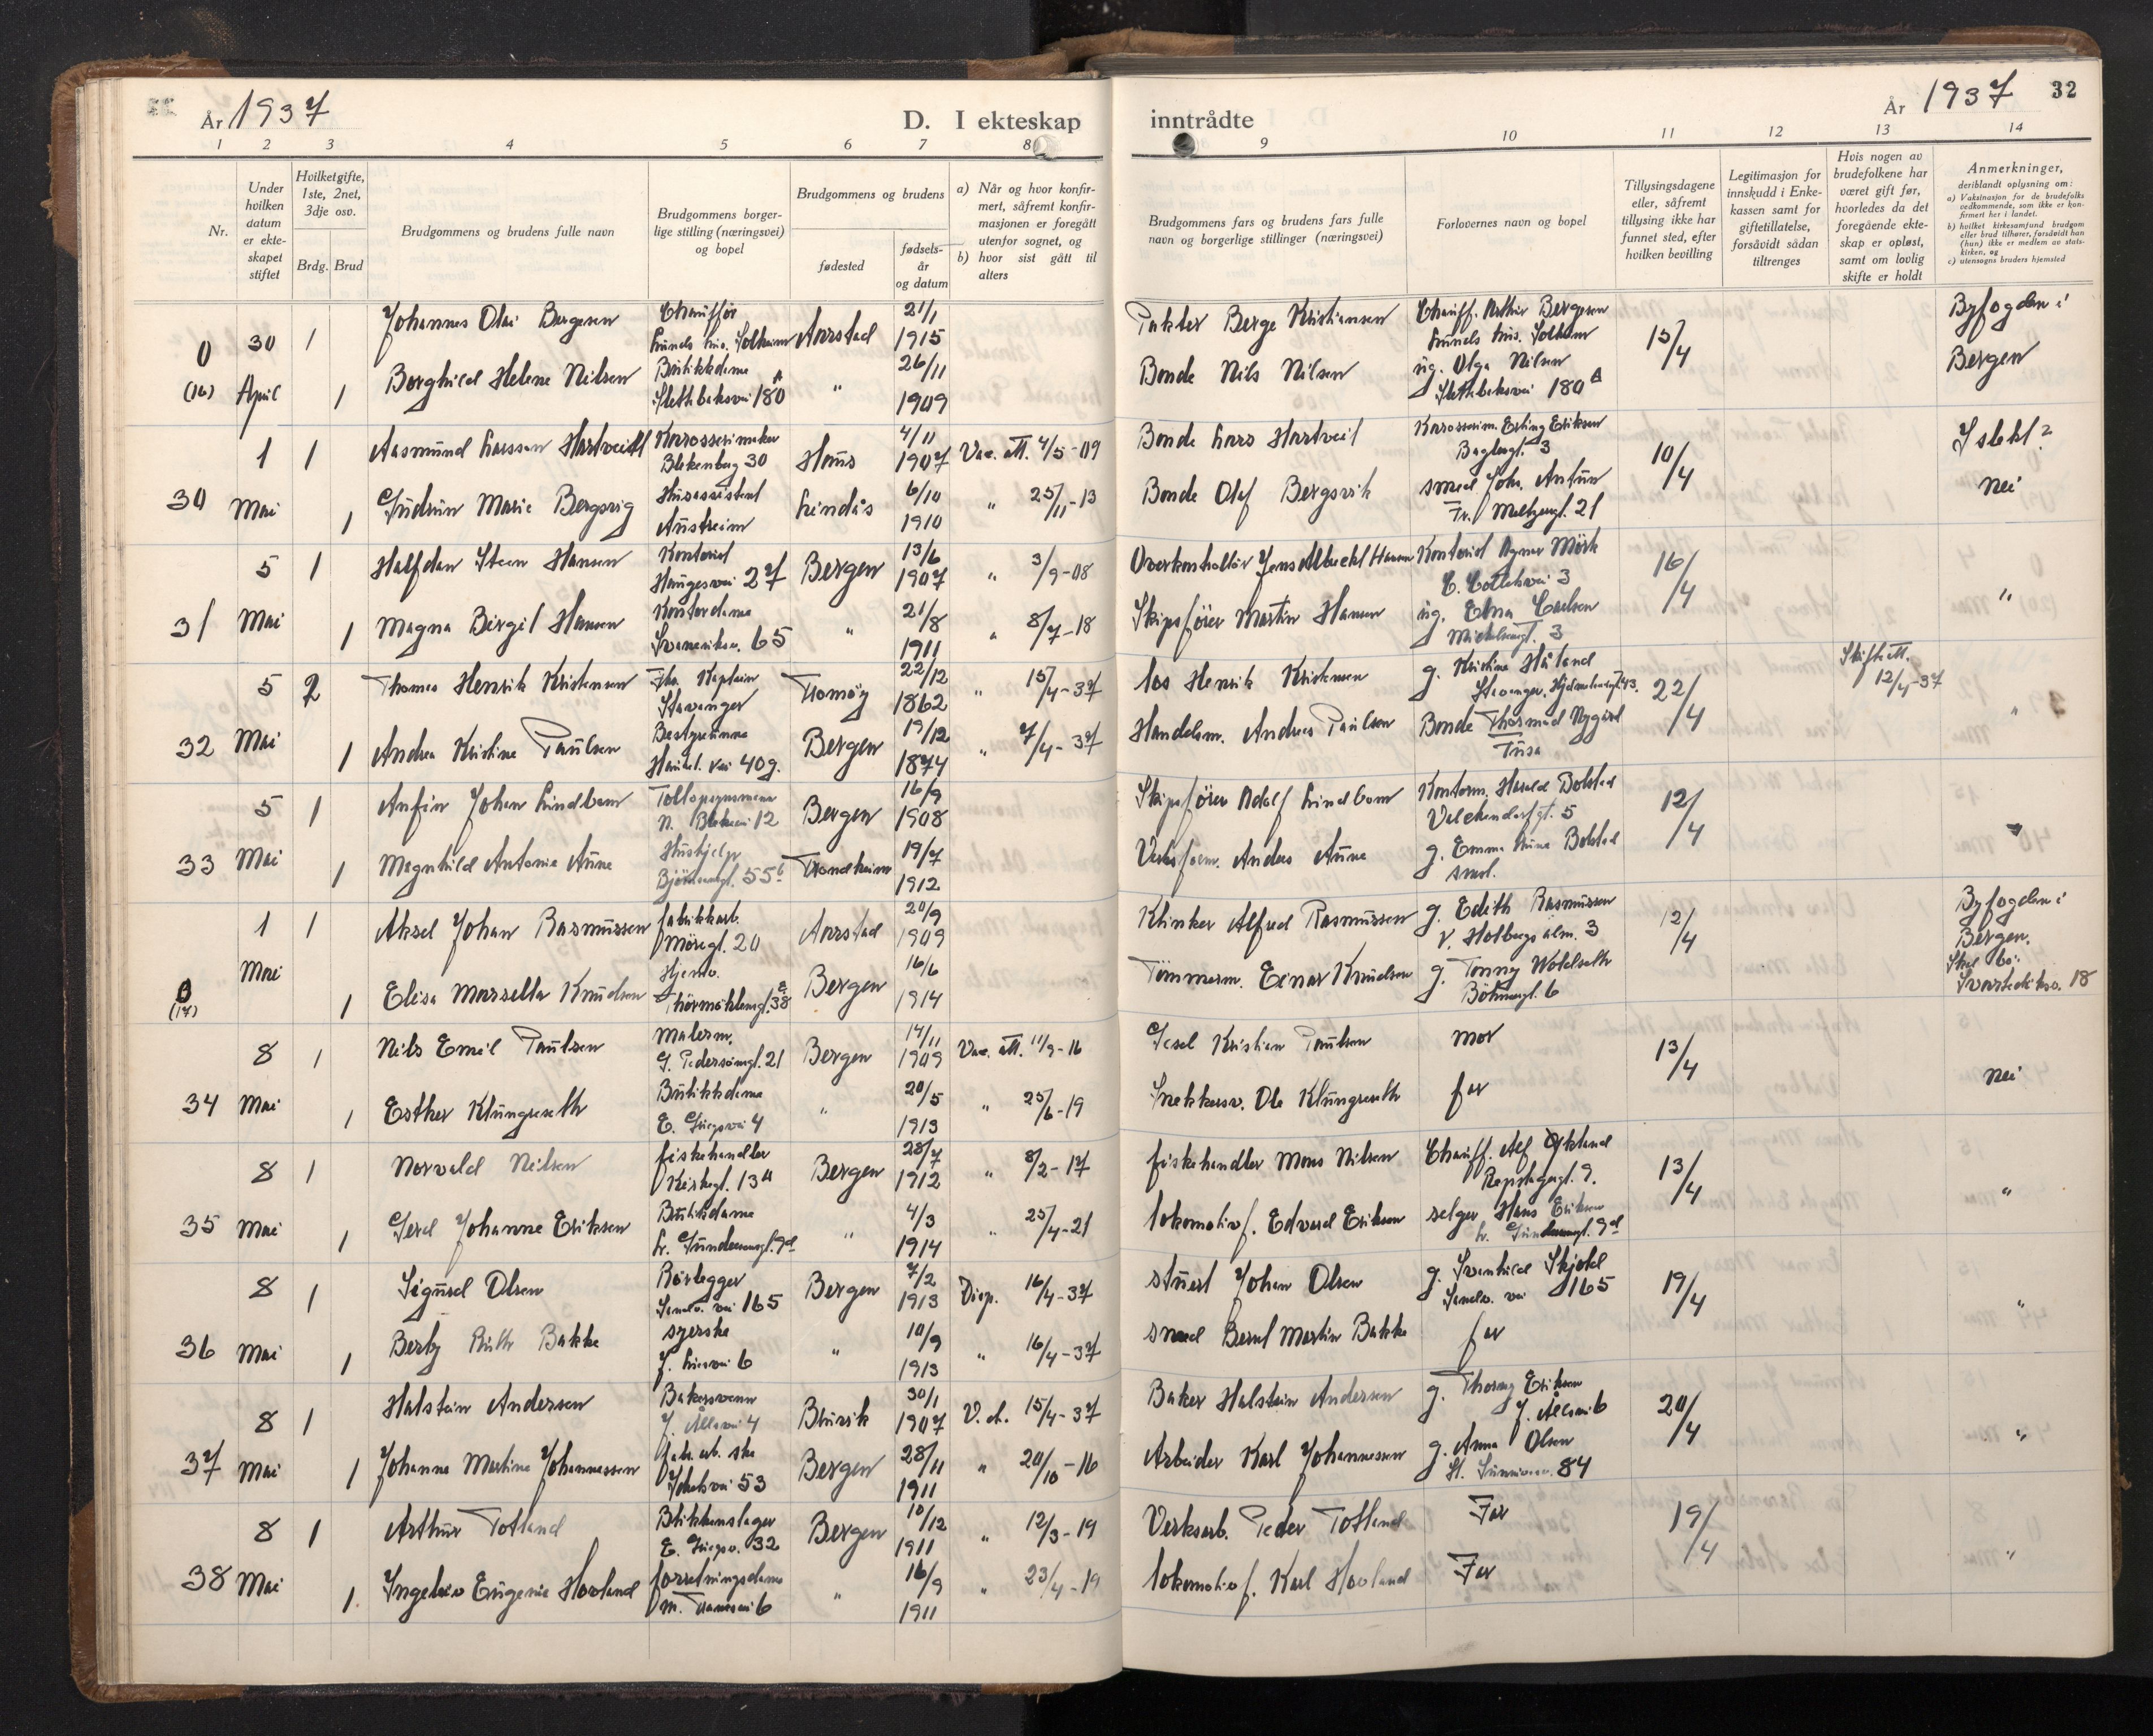 År 1937
D. I ekteskap
1 2 3 4 5 6 7 8
Nr.
Under hvilken datum er ekteskapet stiftet
Hvilketgifte, 1ste, 2net, 3dje osv.
Brdg. Brud
Brudgommens og brudens fulle navn
Brudgommens borgerlige stilling (næringsvei) og bopel
Brudgommens og brudens
fødested
fødselsår og datum
a) Når og hvor konfirmert, såfremt konfirmasjonen er foregått utenfor sognet, og
b) hvor sist gått til alters
inntrådte
År 1937 32
9 10 11 12 13 14
Brudgommens fars og brudens fars fulle navn og borgerlige stillinger (næringsvei)
Forlovernes navn og bopel
Tillysingsdagene eller, såfremt tillysing ikke har funnet sted, efter hvilken bevilling
Legitimasjon for innskudd i Enkekassen samt for giftetillatelse, forsåvidt sådan tiltrenges
Hvis nogen av brudefolkene har været gift før, hvorledes da det foregående ekteskap er opløst, samt om lovlig skifte er holdt
Anmerkninger,
deriblandt oplysning om:
a) Vaksinasjon for de brudefolks vedkommende, som ikke er konfirmert her i landet.
b) hvilket kirkesamfund brudgom eller brud tilhører, forsåvidt han (hun) ikke er medlem av statskirken, og
c) utensogns bruders hjemsted
0 30 1 Johannes Olai Bergesen Chauffør Solheim Aarstad 21/1 1915 Berge Kristiansen Chauff. Arthur Bergesen 15/4 Byfogden i
(16) April 1 Borghild Helene Nilsen Butikkdame Slettebaksvei 180 A " 26/11 1909 Bonde Nils Nilsen ug. Olga Nilsen Slettebaksvei 180 A Bergen
1 1 Aasmund Larssen Hartveidt Karosserimaker Blekenberg 30 Haus 4/11 1907 Vac. att. 4/5-09 Bonde Lars Hartveit Karosserim. Erling Eriksen 3 10/4 Islekt?
30 Mai 1 Gudrun Marie Bergsvig Husassistent Austreim Lindås 6/10 1910 " 25/11-13 Bonde Olaf Bergsvik smed Johs. Antun Fr. Meltzersgt. 21 nei
5 1 Halfdan Steen Hansen Kontorist Haugesvei 27 Bergen 13/6 1907 " 3/9-08 Overkontrollør Jens Albrecht Hansen Kontorist Agnar Mörk 3 16/4
31 Mai 1 Magna Birgit Hansen Kontordame 65 " 21/8 1911 " 8/7-18 Skipsfører Martin Hansen ug. Edna Carlsen Michelsensgt. 3 "
5 2 Thomas Henrik Kristensen Fhv. Kaptein Stavanger Tromöy 22/12 1862 " 15/4-37 Los Henrik Kristensen g. Kristine Håland Stavanger 22/4 Skifteatt. 12/4-37
32 Mai 1 Andrea Kristine Paulsen Bestyrerinne 40 g. Bergen 19/12 1874 " 7/4-37 Handelsm. Andreas Paulsen Bonde Thormod Nygård Fusa "
5 1 Anfin Johan Lindbom Tollopsynsmann N. Blekevei 12 Bergen 16/9 1908 Skipsfører Adolf Lindbom Kontorm. Harald Bolstad Valckendorfsgt. 5 12/4
33 Mai 1 Magnhild Antonie Aune Hushjelp Björnsonsgt. 55 b Trondheim 19/7 1912 Verksform. Anders Aune g. Emma Bolstad smst.
1 1 Aksel Johan Rasmussen fabrikkarb. Möregt. 20 Aarstad 20/9 1909 Klinker Alfred Rasmussen g. Edith Rasmussen V. Holbergs alm. 3 12/4 Byfogden i Bergen.
0 (17) Mai 1 Elisa Marsella Knudsen Hjemv. Thormøhlensgt. 38 a Bergen 16/6 1914 Tömmerm. Einar Knudsen g. Tonny Woldseth Böhmergt. 6 Skal bo: Svartediksv. 18
8 1 Nils Emil Paulsen Malerm. G. Pedersönsgt. 21 Bergen 14/11 1909 Vac. att. 11/9-16 Kristian Paulsen mor 13/4
34 Mai 1 Esther Klungreseth Butikkdame E. Griegsvei 4 " 20/5 1913 " 25/6-19 Snekkersv. Ole Klungreseth far nei
8 1 Norvald Nilsen fiskehandler Kirkegt. 13 A Bergen 28/7 1912 " 8/2-17 fiskehandler Mons Nilsen Chauff. Alf Økland Repslagergt. 9. 13/4
35 Mai 1 Gerd Johanne Eriksen Butikdame Gundersensgt. 9 d " 4/3 1914 " 25/4-21 lokomotivf. Edvard Eriksen selger Hans Eriksen Gundersensgt. 9 d "
8 1 Sigurd Olsen Rörlegger Sandv. vei 165 Bergen 7/2 1913 Disp. 16/4-37 stuert Johan Olsen g. Svanhild Skjold Sandv. vei 165 19/4
36 Mai 1 Berby Ruth Bakke syerske J. Liesvei 6 " 10/9 1913 " 16/4-37 smed Bernt Martin Bakke far "
8 1 Halstein Andersen Bakersvenn J. Allsvei 4 Bturik 30/1 1907 V. at. 15/4-37 Baker Halstein Andersen g. Thorny Eriksen J. Allsvei 6 20/4
37 Mai 1 Johanne Martine Johannessen fabr. arb. ske 53 Bergen 28/11 1911 " 20/10-16 Arbeider Karl Johannessen g. Anna Olsen 84 "
8 1 Arthur Totland Blikkenslager E. Griegsv. 32 Bergen 10/12 1911 " 12/3-19 Verksarb. Peder Totland Far 19/4
38 Mai 1. Ingebir Eugenie Hovland forretningsdame 6 " 16/9 1911 " 23/4-19 lokomotivf. Karl Hovland Far "